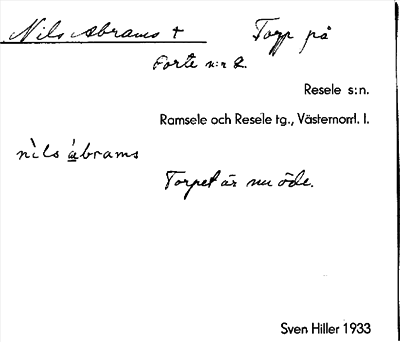 Nils Abrams + Torp på
Forte n:r 2.
Resele s:n.
Ramsele och Resele tg., Västernorrl. l.
nìls ábrams
Torpet är nu öde.
Sven Hiller 1933